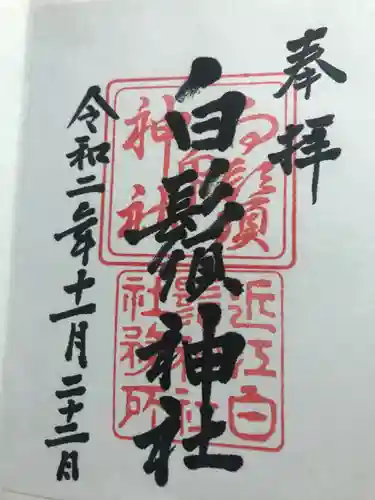 奉拝
白鬚神社
令和二年十一月二十二日
白鬚神社
近江白鬚神社社務所